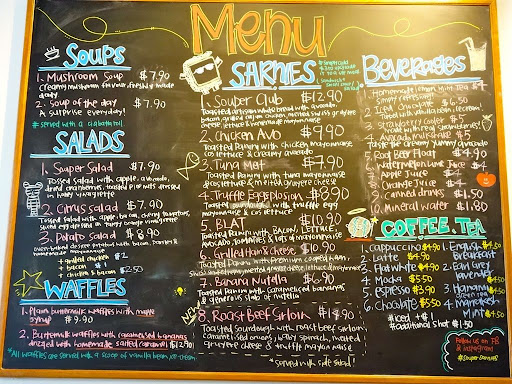 Menu
SOUPS
1. Mushroom Soup $7.90
Creamy mushroom to your
2. Soup of the day $7.90
A surprise everyday!
SALADS
1. Souper Salad $7.90
Tossed salad with apple, avocado,
dried cranberries, toasted pine nuts dressed
in honey vinaigrette
2. Citrus salad $7.90
Tossed salad with apple, bacon, cherry tomatoes,
3. Potato salad $8.90
potatoes with bacon,
homemade mayonnaise
+ grilled chicken $2
+ bacon $1
+ chicken & bacon $2.50
WAFFLES
1. Plain buttermilk waffles with maple
syrup $9.90
2. Buttermilk waffles with caramelised bananas
drizzled with homemade salted caramel $12.90
*All waffles are served with a scoop of vanilla bean ice-cream
SARNIES
1. Souper Club $12.90
Toasted artisan with avocado,
2. Chicken Avo $9.90
Toasted Panini with chicken mayonnaise
cos lettuce & creamy avocado
3. Tuna Melt $7.90
Toasted Panini with tuna mayonnaise
cos lettuce & melted gruyere cheese
4. Truffle Eggsplosion $8.90
Toasted with truffle egg
mayonnaise & cos lettuce
5. BLAT $10.90
Toasted Panini with Bacon, Lettuce,
Avocado, Tomatoes &
6. Grilled Ham & Cheese $10.90
7. Banana Nutella $6.90
Toasted Panini with caramelised bananas
& generous slab of nutella
NEW
8. Roast Beef Sirloin $14.90
Toasted Sourdough with roast beef sirloin,
caramelised onions, baby spinach, melted
gruyere cheese & truffle mayonnaise
*served with side salad*
BEVERAGES
1. Homemade Lemon Iced Tea $4
Simply refreshing
2. Iced Chocolate $6.50
Topped with vanilla ice cream!
Made with real strawberries!
Taste the creamy yummy avocado
5. Root Beer Float $4.90
6. Watermelon Juice $4
7. Apple Juice $4
8. Orange Juice $4
9. Canned drinks $1.50
10. Mineral water $1.80
COFFEE. TEA
1. Cappuccino $4.90
2. Latte $4.90
3. Flat white $4.90
4. Mocha $5.50
5. Espresso $3.90
6. Chocolate $5.50
#iced + $1
#additional shot $1.50
1. English $4.50
Breakfast
2. Earl Grey
Lavender
4. Marrakesh
Mint $4.50
Follow us on FB
& instagram!